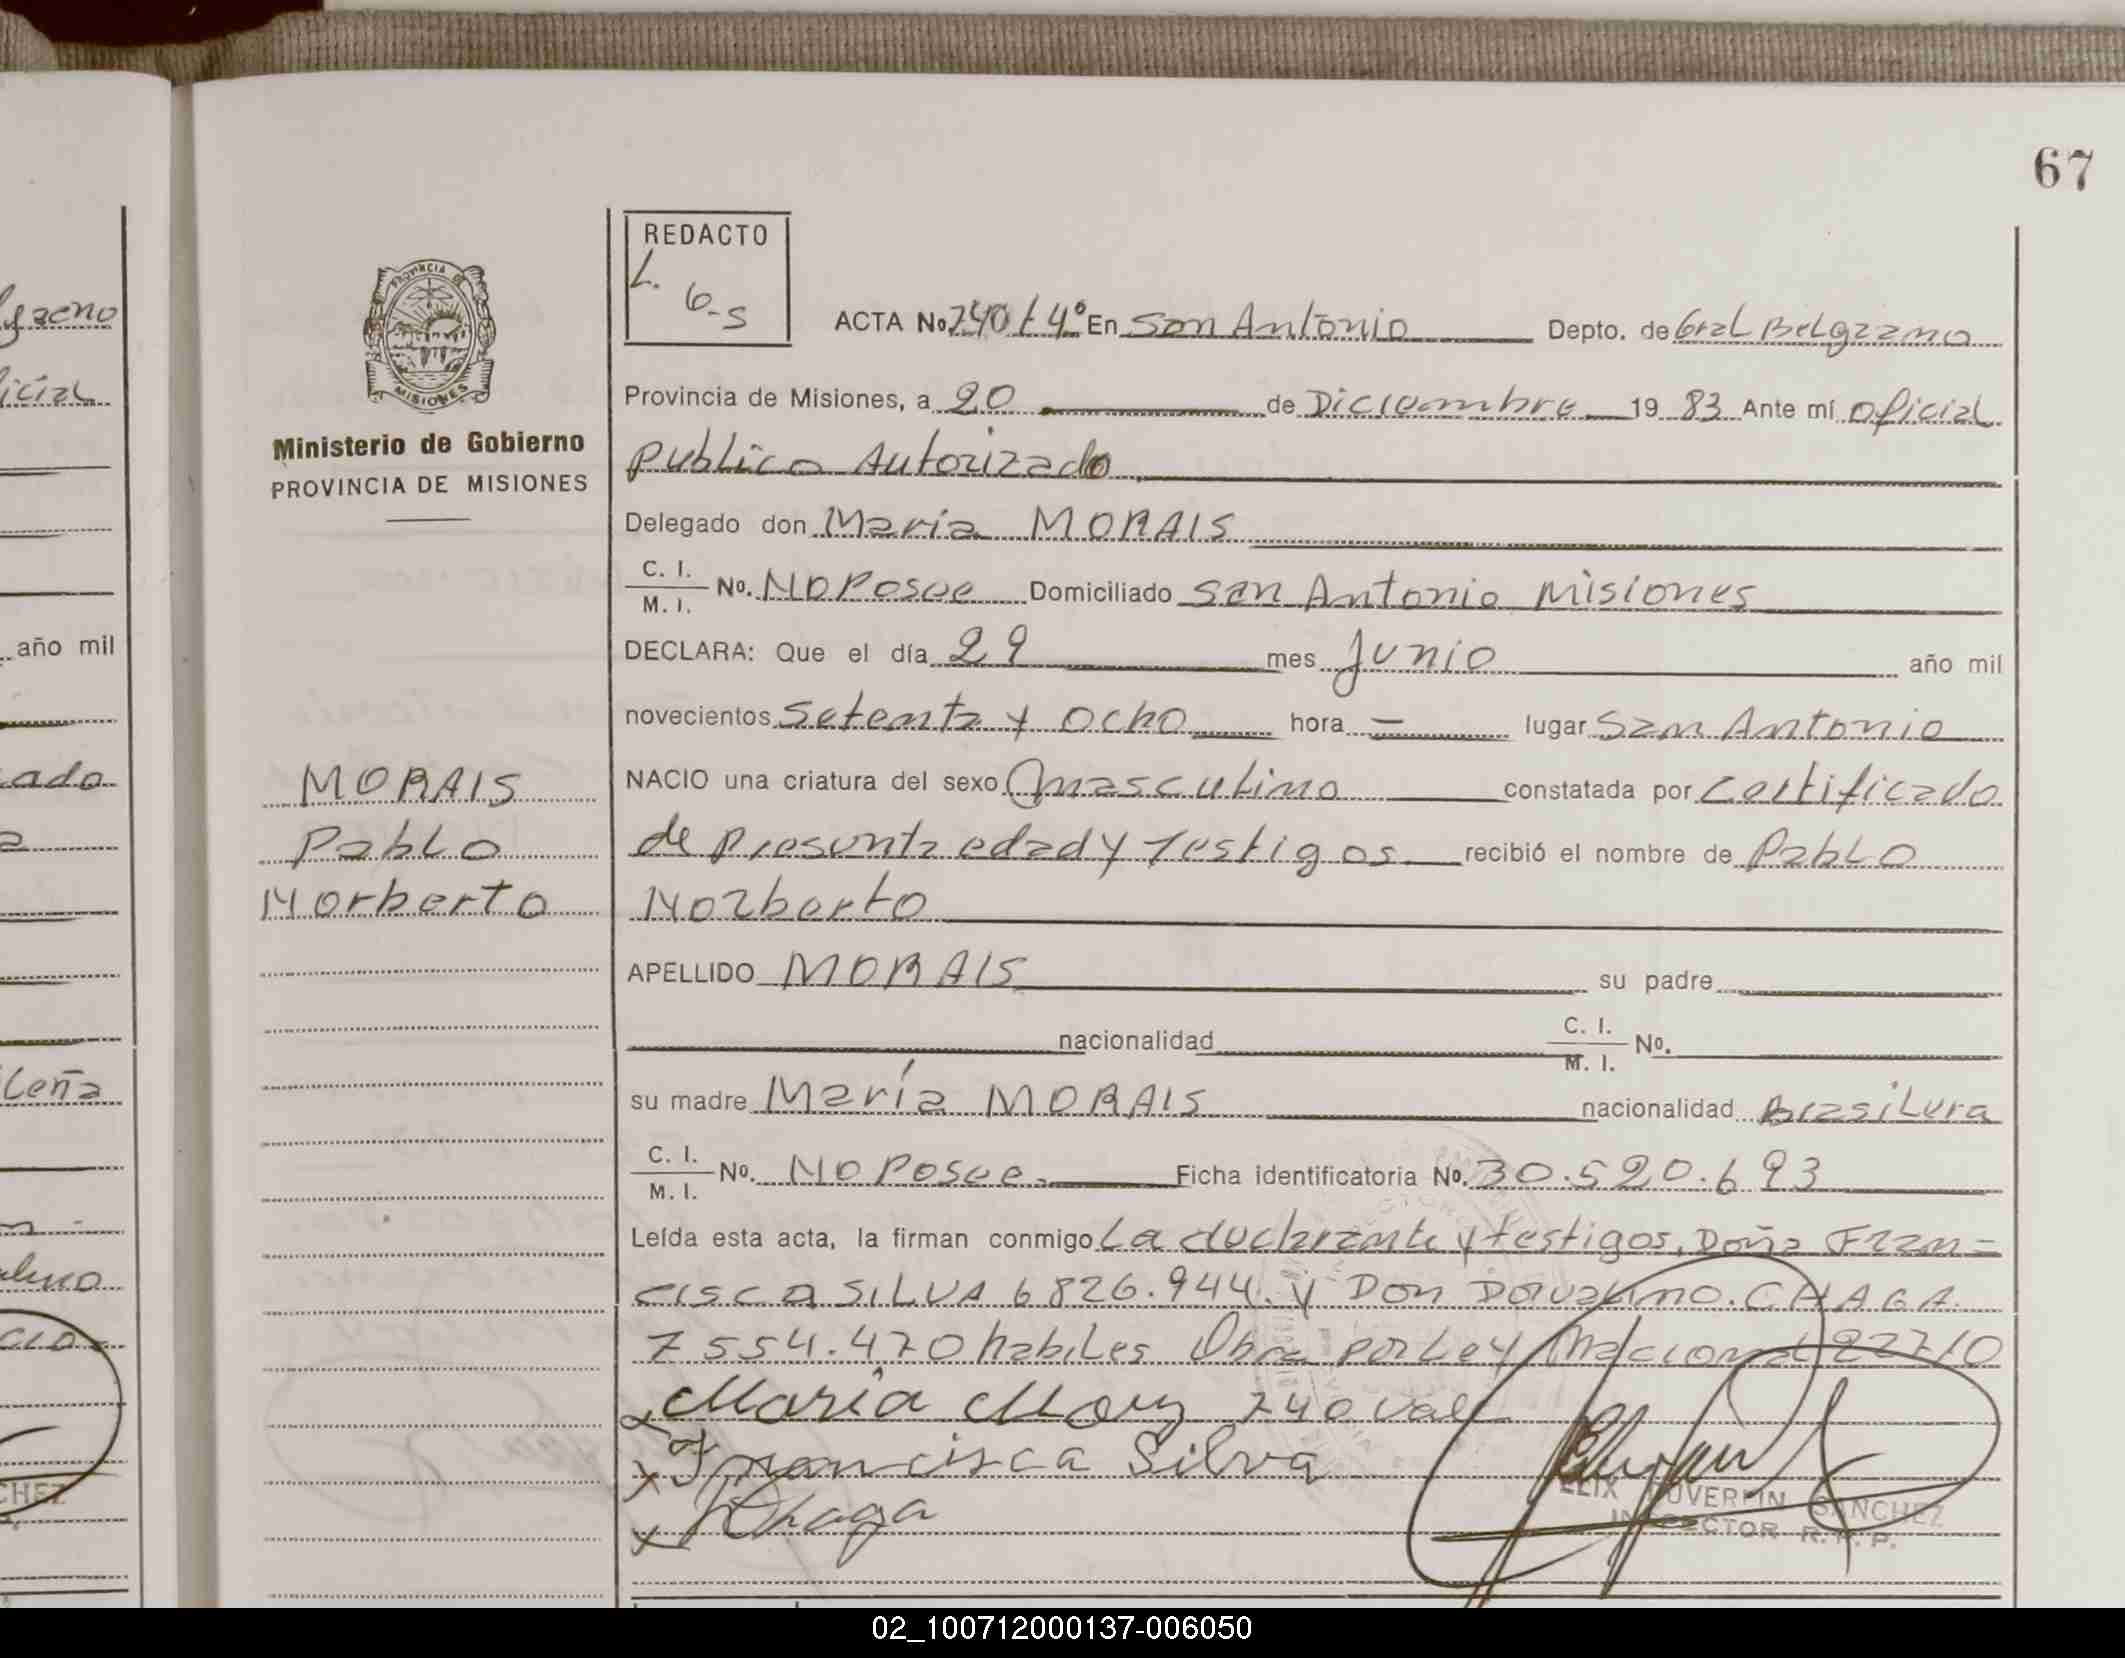 67
REDACTO
L.
6-S
PROVINCIA DE
MISIONES
ACTA No 740 t 4º En San Antonio Depto. de Gral Belgrano
Ministerio de Gobierno
PROVINCIA DE MISIONES
Provincia de Misiones, a 20 de Diciembre 19 83 Ante mí oficial
publico Autorizado
Delegado don Maria MORAIS
C. I.
M. I. No. No Posee Domiciliado San Antonio Misiones
DECLARA: Que el día 29 mes Junio año mil
novecientos Setenta y Ocho hora — lugar San Antonio
NACIO una criatura del sexo masculino constatada por Certificado
de Presunta edad y Testigos recibió el nombre de Pablo
Norberto
MORAIS
Pablo
Norberto
APELLIDO MORAIS su padre
nacionalidad C. I.
M. I. No.
su madre María MORAIS nacionalidad Brasilera
C. I.
M. I. No. No Posee. Ficha identificatoria No. 30.520.693
Leída esta acta, la firman conmigo La declarante y testigos, Doña Fran=
cisca SILVA 6826.944. y Don Dorvalino. CHAGA
7554.470 habiles Obra por Ley Nacional 22710
María 740 Vale
x Francisca Silva
x Chaga
FELIX SANCHEZ
INSPECTOR R. P. P.
greno
icial
año mil
ado
leña
CHEZ
02_100712000137-006050